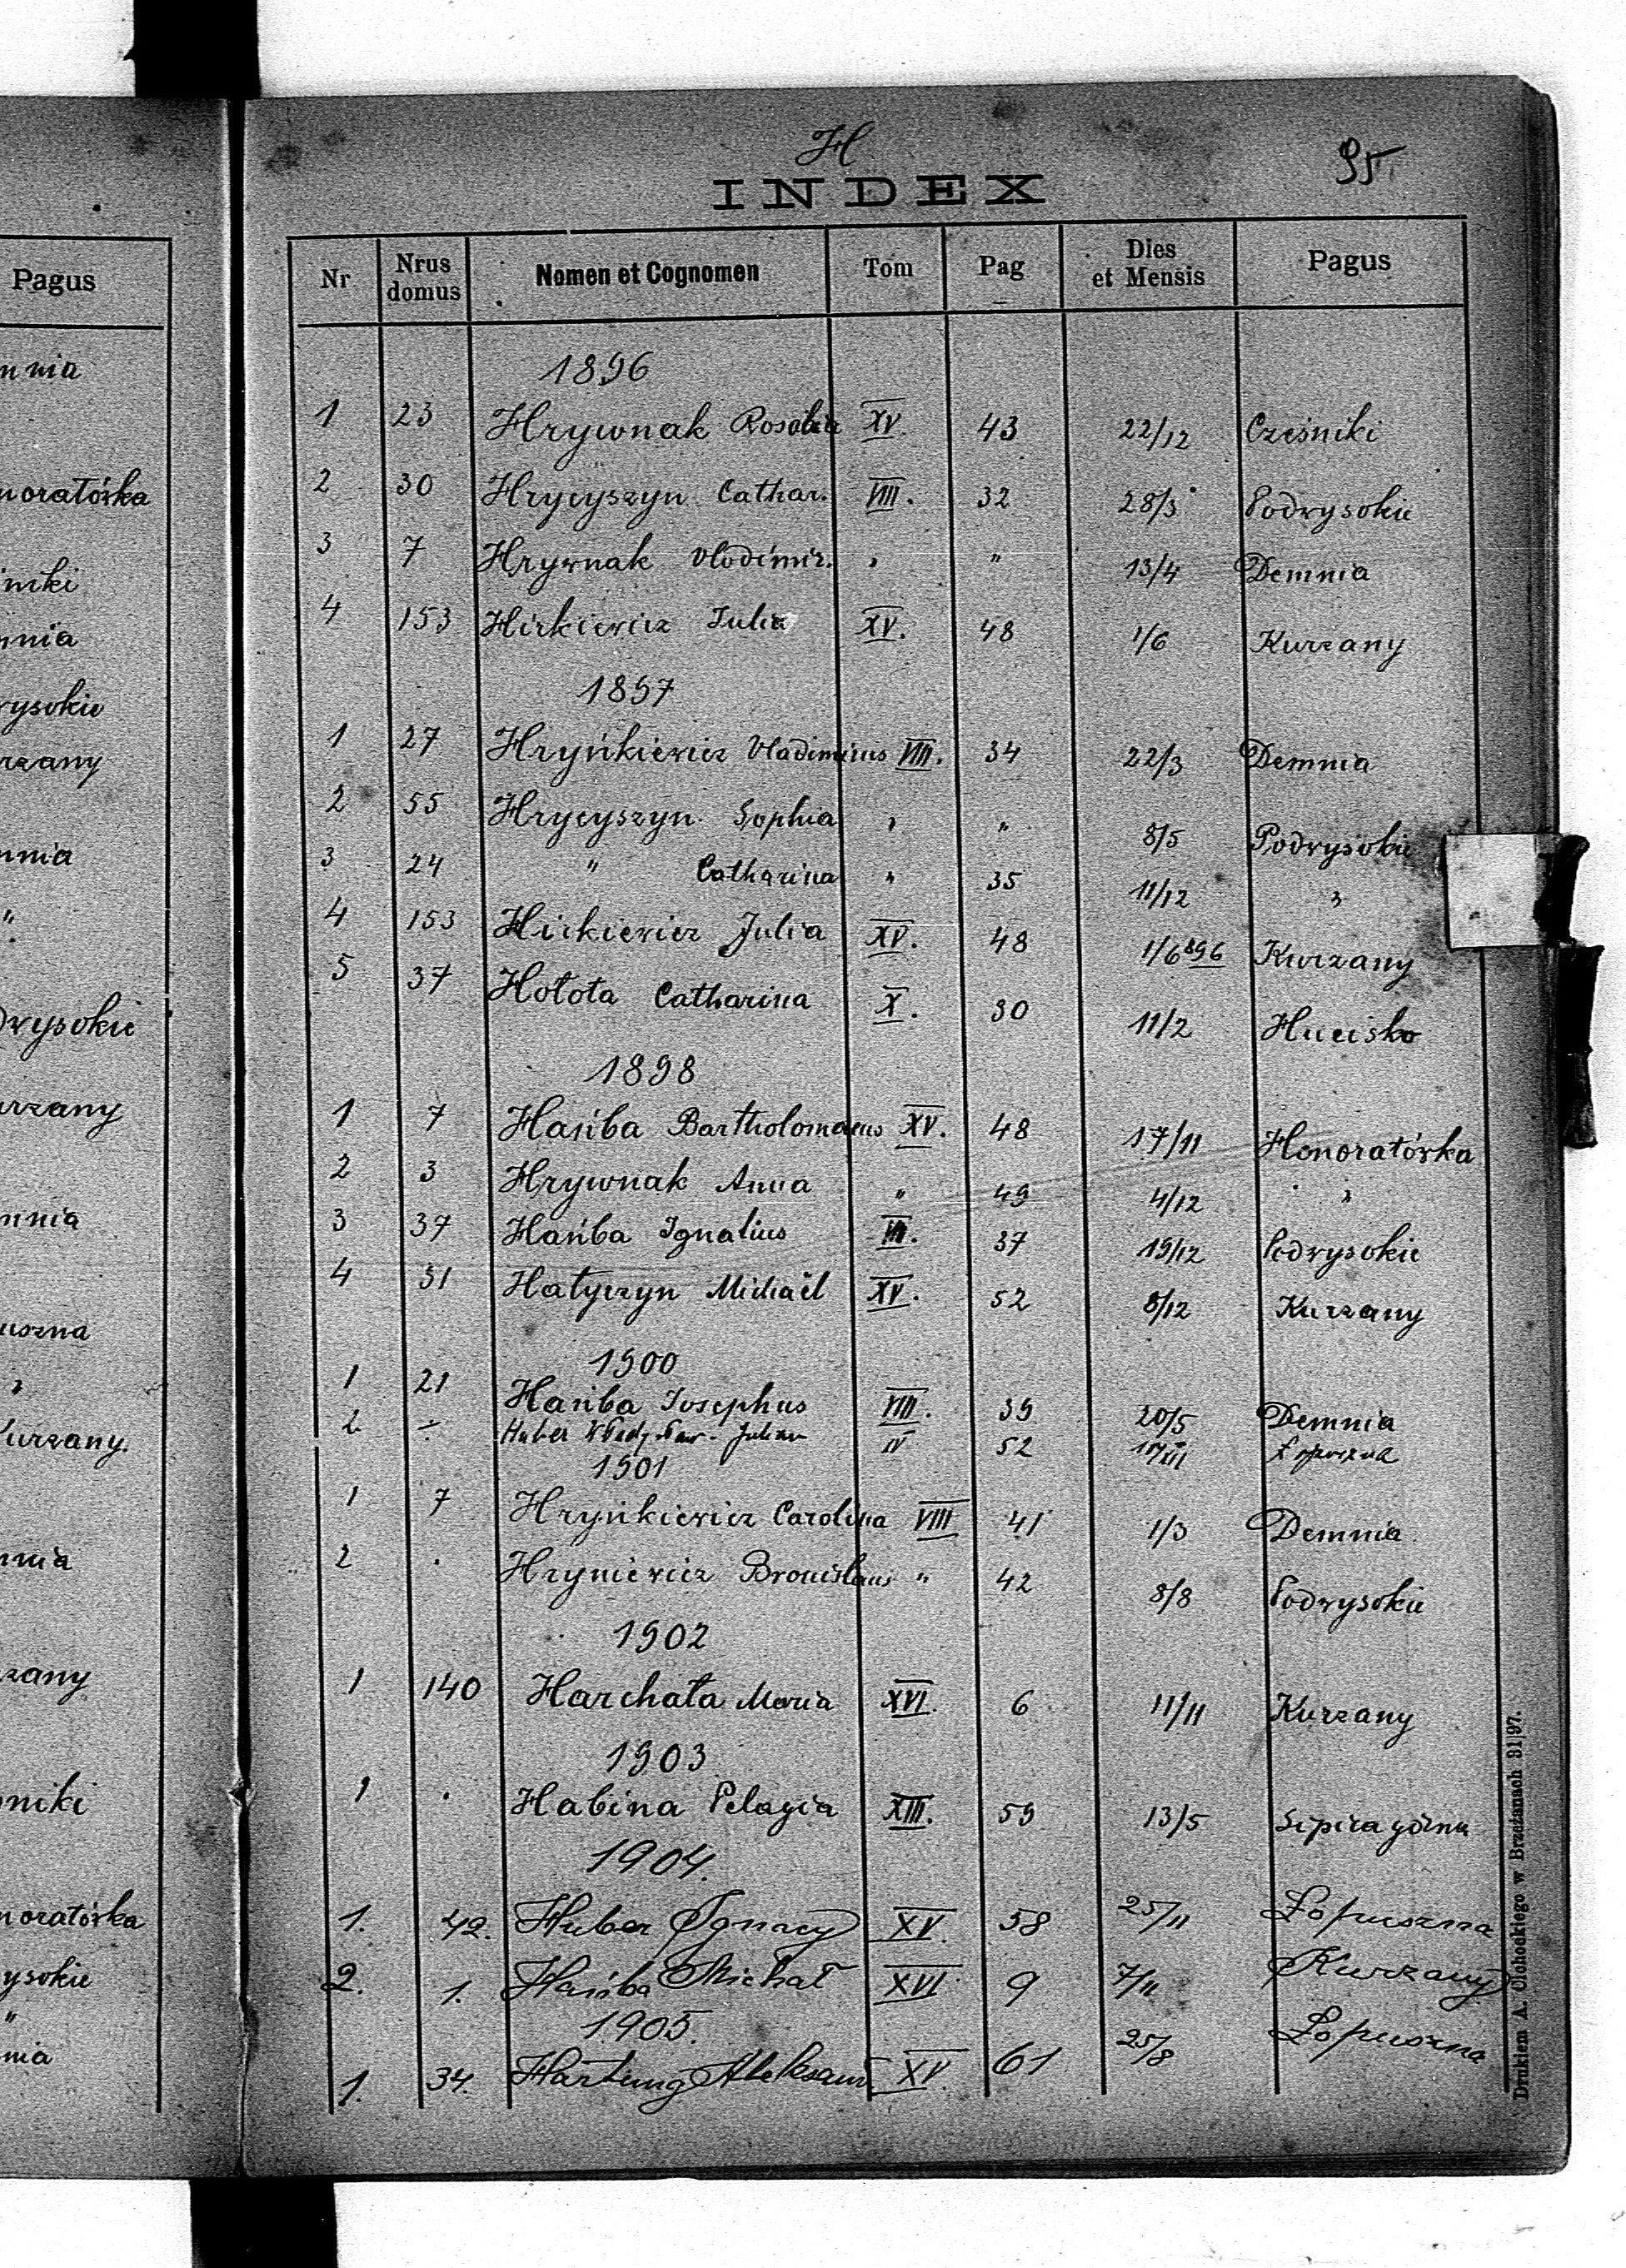 H
95
INDEX
Nr Nrus domus Nomen et Cognomen Tom Pag Dies et Mensis Pagus
1896
1 23 Hrywnak Rosalia XV. 43 22/12 Cześniki
2 30 Hrycyszyn Cathar. VIII. 32 28/3 Podwysokie
3 7 Hrywnak Vlodimir. " " 13/4 Demnia
4 153 Hirkiewicz Julia XV. 48 1/6 Kurzany
1897
1 27 Hryńkiewicz Vladimirus VIII. 34 22/3 Demnia
2 55 Hrycyszyn Sophia " " 8/5 Podwysokie
3 24 " Catharina " 35 11/12 "
4 153 Hirkiewicz Julia XV. 48 1/6 896 Kurzany
5 37 Hołota Catharina X. 30 11/2 Hucisko
1898
1 7 Hańba Bartholomaeus XV. 48 17/11 Honoratówka
2 3 Hrywnak Anna " 49 4/12 "
3 37 Hańba Ignatius 37 19/12 Podwysokie
4 31 Hałyczyn Michaël XV. 52 8/12 Kurzany
1900
1 21 Hańba Josephus VIII. 39 20/5 Demnia
2 Huber Julian 52 Łopuszna
1901
1 7 Hryńkiewicz Carolina VIII 41 1/3 Demnia
2 . Hryniewicz Bronislaus " 42 8/8 Podwysokie
1902
1 140 Harchała Maria XVI. 6 11/11 Kurzany
1903
1 . Habina Pelagia XIII. 59 13/5 Lipica górna
1904.
1. 42. Huber Ignacy XV. 58 25/11 Łopuszna
2. 1. Hańba Michał XVI 9 7/11 Kurzany
1905.
1. 34. Hartung Aleksand XV. 61 25/8 Łopuszna
Drukiem A. Olchockiego w Brzeżanach 31|97.
Pagus